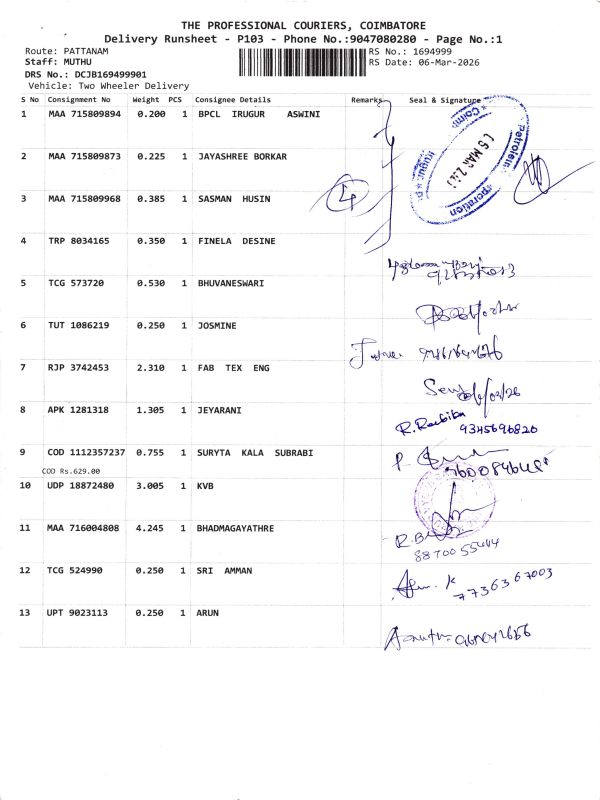 THE PROFESSIONAL COURIERS, COIMBATORE
Delivery Runsheet - P103 - Phone No.:9047080280 - Page No.:1
Route: PATTANAM
Staff: MUTHU
DRS No.: DCJB169499901
Vehicle: Two Wheeler Delivery
RS No.: 1694999
RS Date: 06-Mar-2026
S No Consignment No Weight PCS Consignee Details Remarks Seal & Signature
1 MAA 715809894 0.200 1 BPCL IRUGUR ASWINI
2 MAA 715809873 0.225 1 JAYASHREE BORKAR
3 MAA 715809968 0.385 1 SASMAN HUSIN
4
4 TRP 8034165 0.350 1 FINELA DESINE
5 TCG 573720 0.530 1 BHUVANESWARI
6 TUT 1086219 0.250 1 JOSMINE
7 RJP 3742453 2.310 1 FAB TEX ENG
8 APK 1281318 1.305 1 JEYARANI
9345696820
9 COD 1112357237 0.755 1 SURYTA KALA SUBRABI
COD Rs.629.00
10 UDP 18872480 3.005 1 KVB
11 MAA 716004808 4.245 1 BHADMAGAYATHRE
12 TCG 524990 0.250 1 SRI AMMAN
7736367003
13 UPT 9023113 0.250 1 ARUN